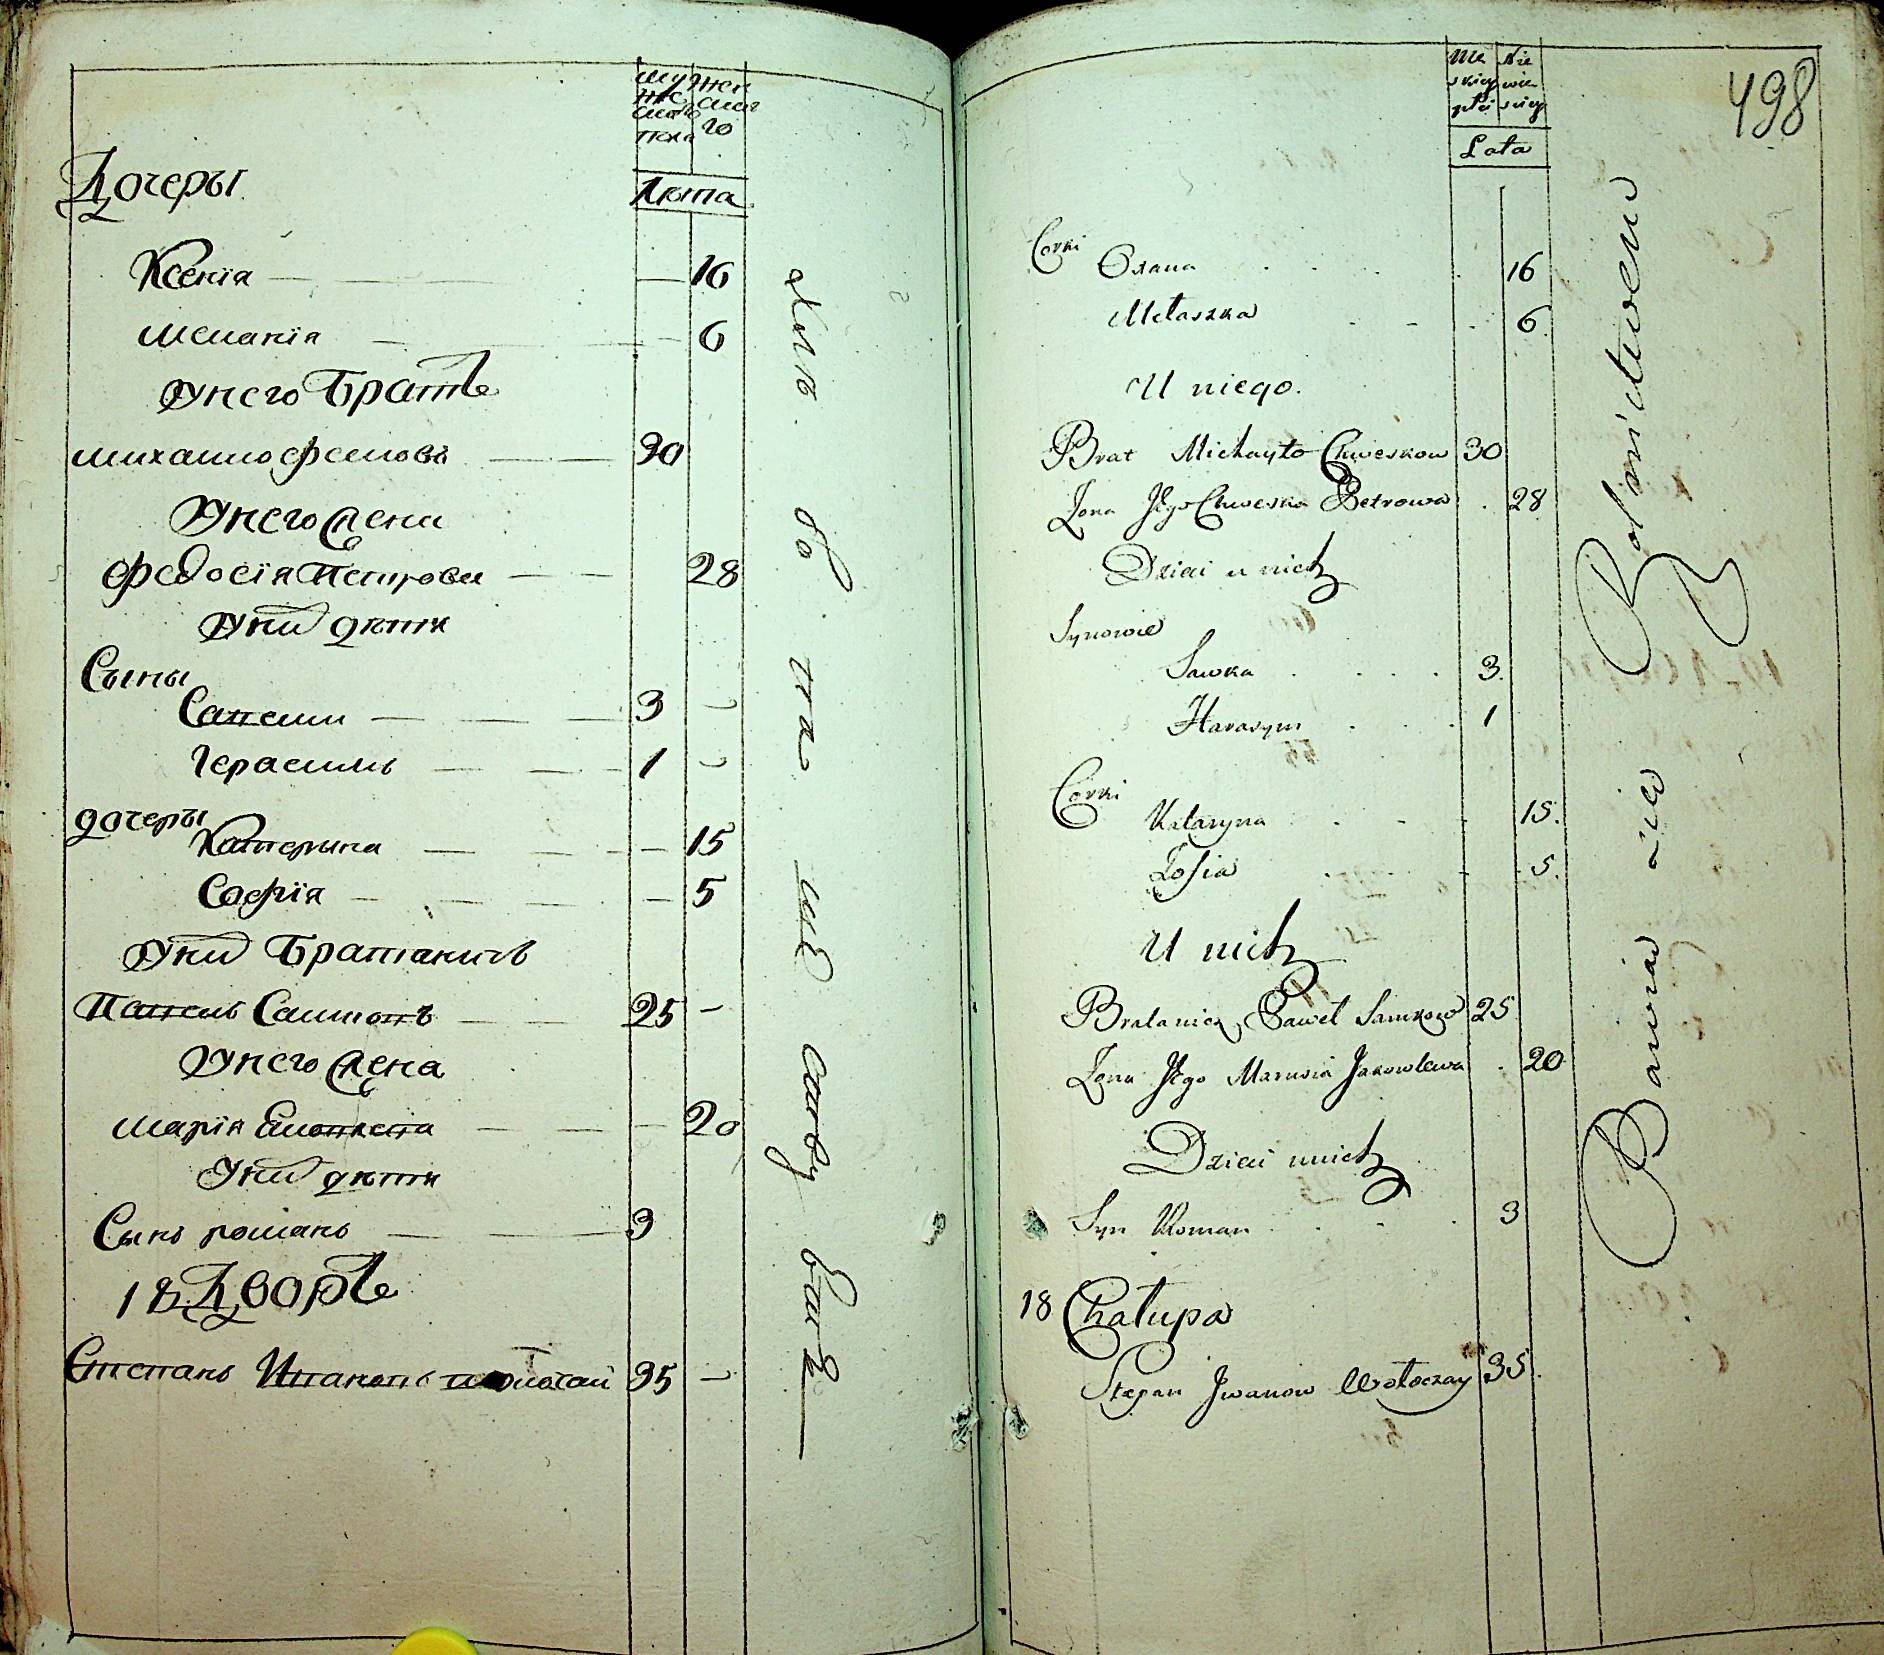 мужескаго пола
женскаго
Лѣта
Дочеры
Ксенія 16
Меланія 6
У него Братъ
Михайло Феиловъ 30
У него Жена
Федосія Петрова 28
У них дѣти
Сыны
Савелии 3
Герасимъ 1
дочеры
Катерына 15
Софія 5
У них Братаничъ
Павелъ Савиновъ 25
У него Жена
Марія 20
У них дѣти
Сынъ романъ 3
18 Дворъ
Степанъ Ивановъ 35
Лѣбопашествуе
498
Lata
Corki
Oxana 16
Metaszka 6
U niego.
Brat Michayło Chweskow 30
Żona Jego Chweska Petrowa 28
Dzieci u nich
Synowie
Sawka 3
Harasym 1
Corki
Kataryna 15.
Zofia 5.
U nich
Bratanicz Paweł Samkow 25
Żona Jego Marusia Jakowlewa 20
Dzieci u nich
Syn Roman 3
18 Chałupa
Stepan Jwanow Wołoczay 35.
Bawią się Rolnictwem